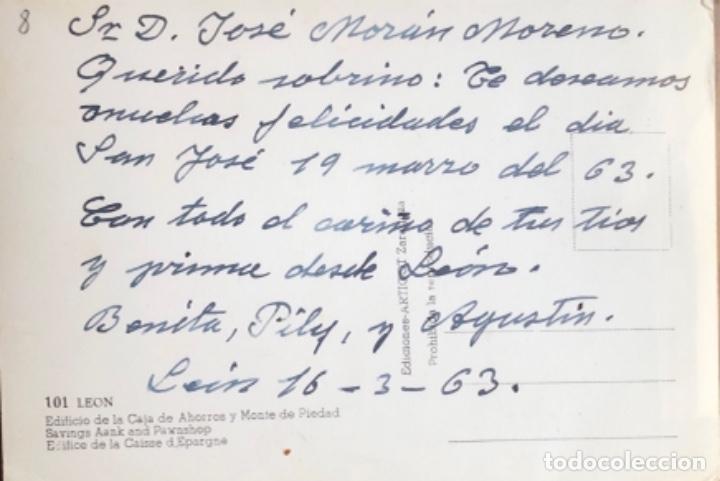 8
Sr D. José Morán Moreno.
Querido sobrino: Te deseamos
muchas felicidades el dia
San José 19 marzo del 63.
Con todo el cariño de tus tios
y prima desde León.
Benita, Pily, y Agustin.
León 16-3-63.
101 LEON
Edificio de la Caja de Ahorros y Monte de Piedad
Savings Aank and Pawnshop
Edifice de la Caisse d,Epargne
Ediciones-ARTIGOT Zaragoza
Prohibida la reproducción
todocoleccion.net